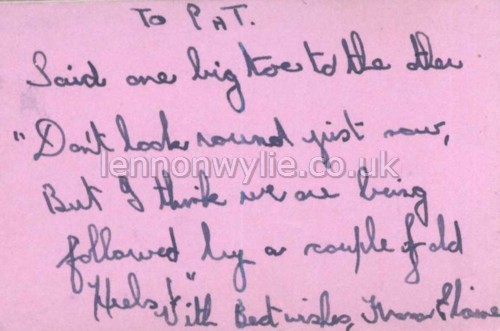 TO PAT.
Said one big toe to the other
"Don't look round just now,
lennonwylie.co.uk
But I think we are being
followed by a couple of old
Heels!" With Best wishes,